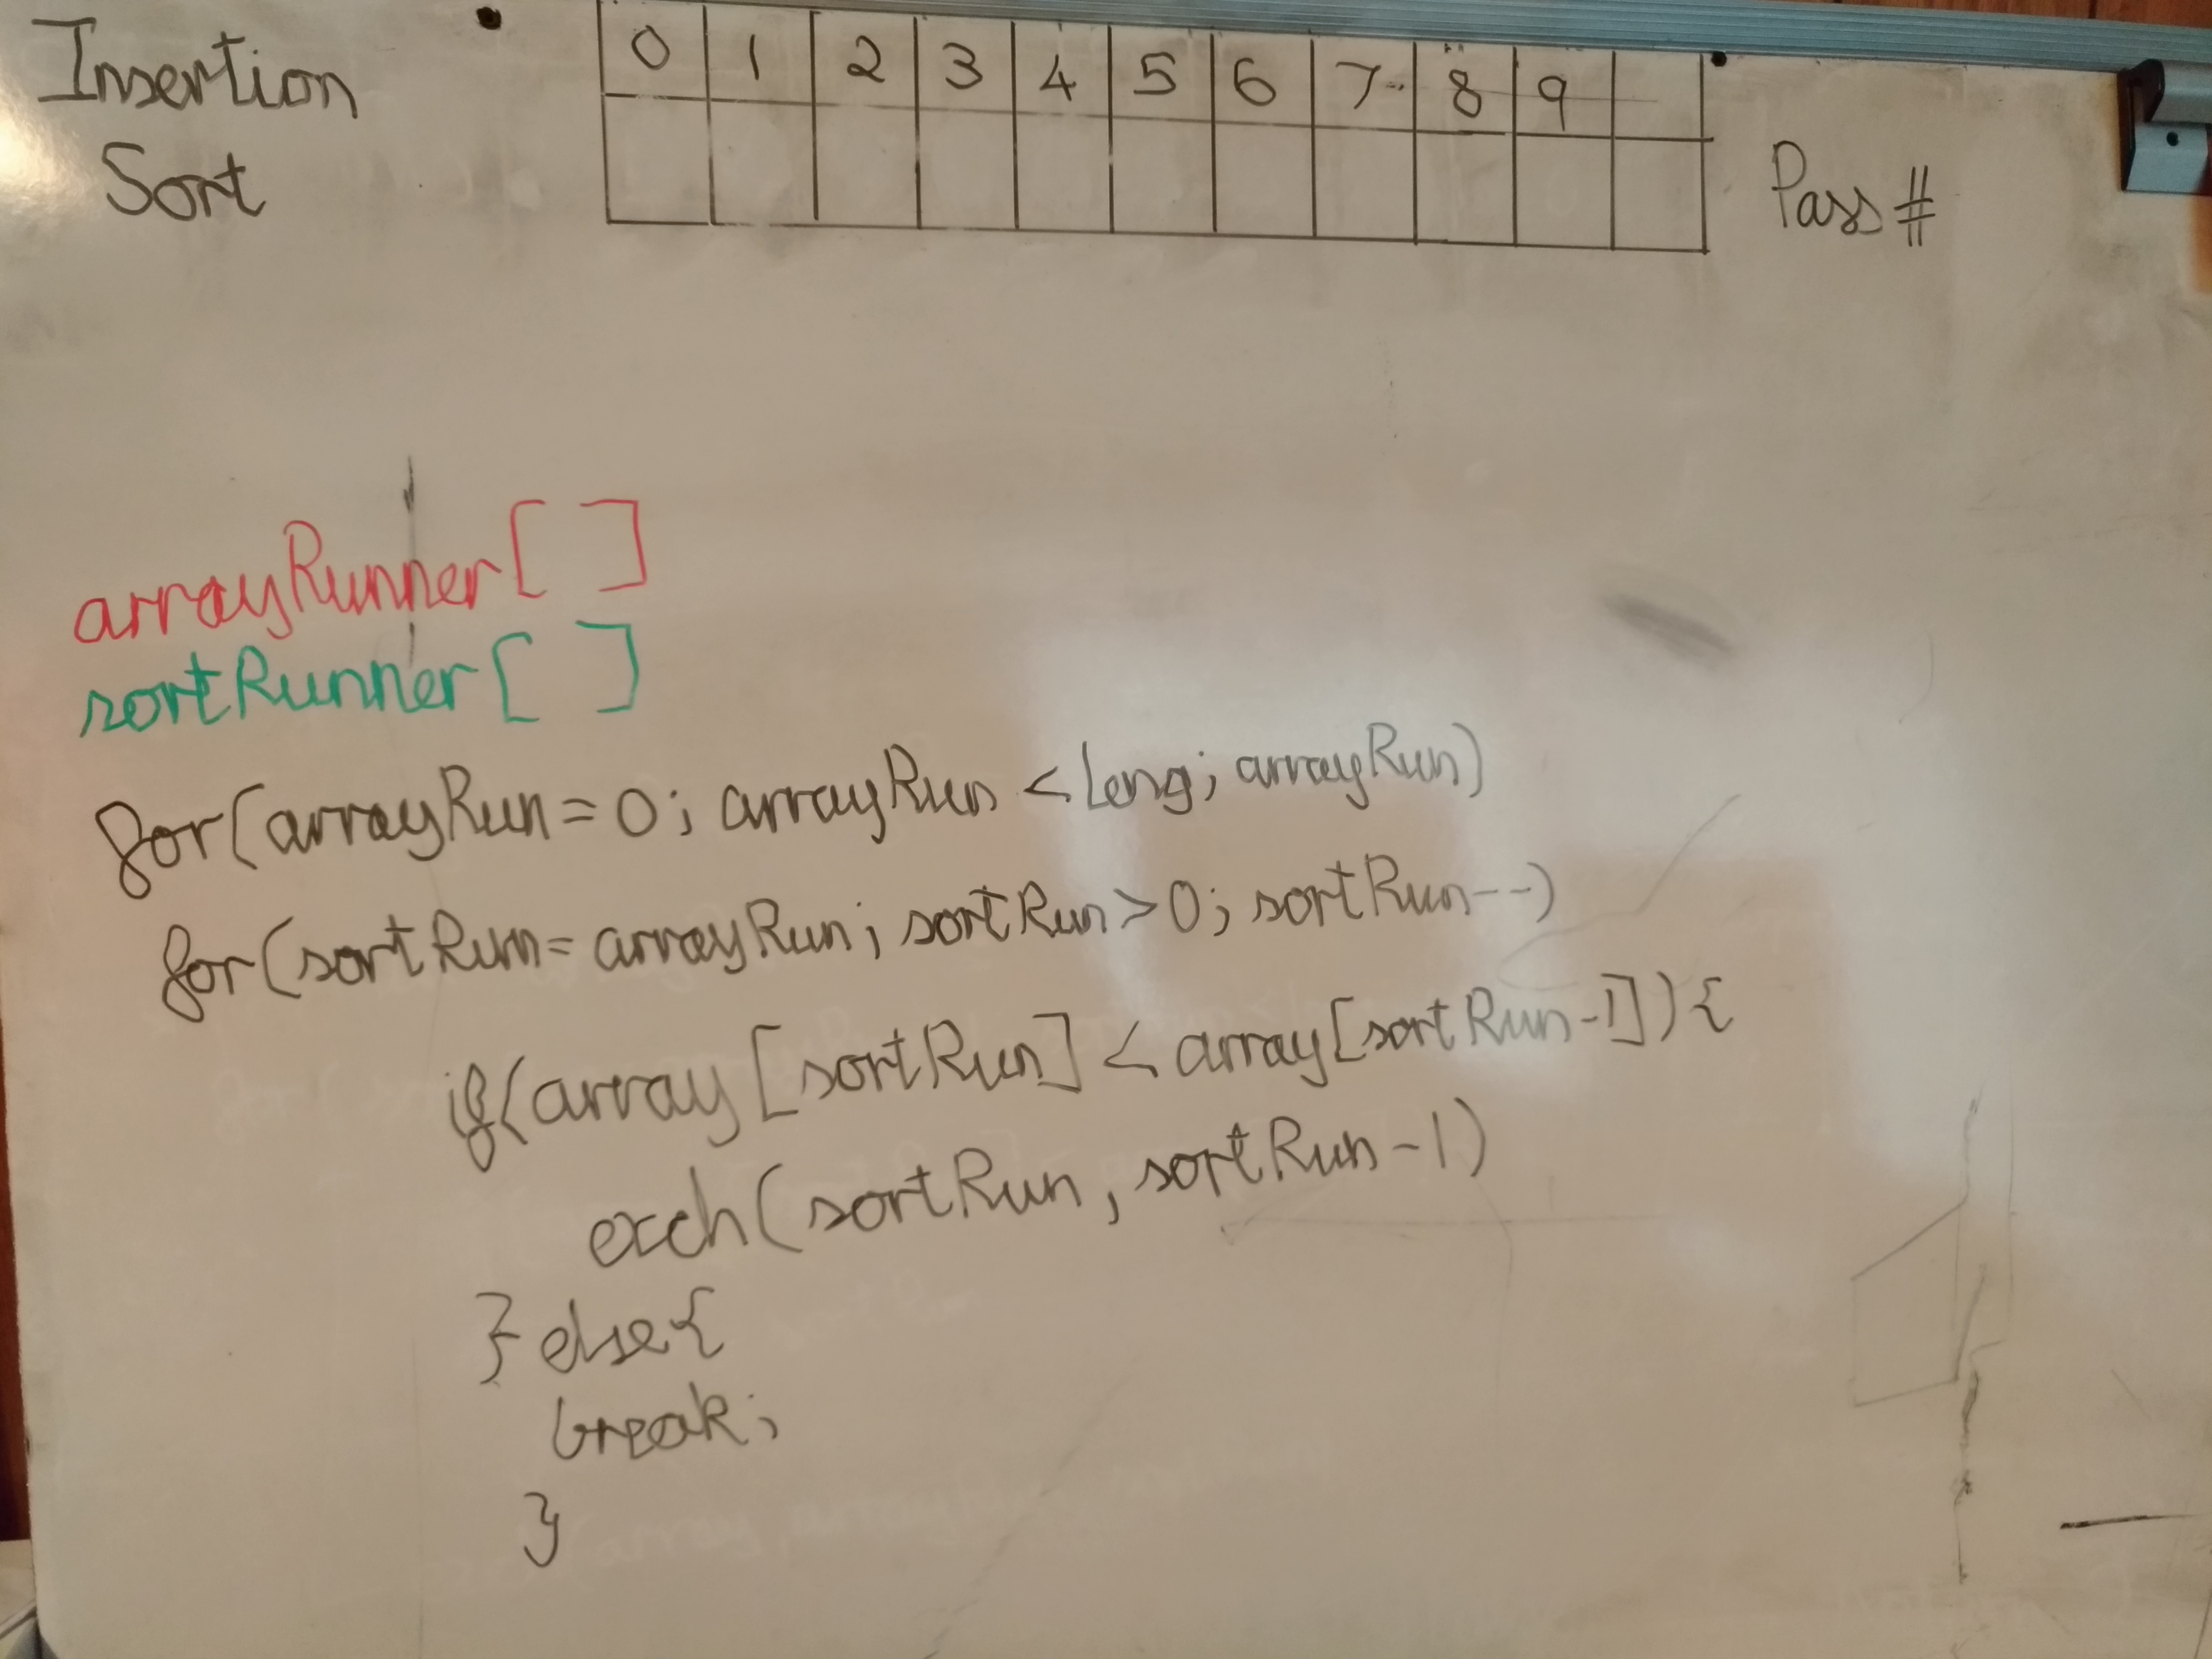 Insertion
Sort
0 1 2 3 4 5 6 7 8 9
Pass #
arrayRunner[ ]
sortRunner[ ]
for(arrayRun=0; arrayRun <leng; arrayRun)
for(sortRun= arrayRun; sortRun>0; sortRun--)
if(array[sortRun] < array[sortRun-1]){
exch(sortRun, sortRun-1)
} else{
break;
}